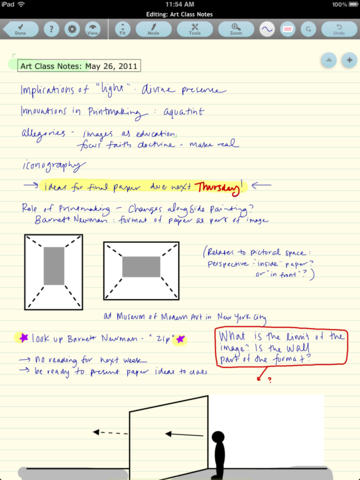 iPad
11:54 AM
100%
Editing: Art Class Notes
Done
View
Fit
Mode
Tools
Zoom
Undo
Art Class Notes: May 26, 2011
Implications of "light" - divine presence
Innovations in Printmaking : aquatint
Allegories - images as education,
focus faith doctrine - make real
iconography
→ ideas for final paper due next Thursday! ←
Role of Printmaking - Changes alongside Painting?
Barnett Newman : format of paper as part of image
(Relates to pictorial space:
perspective "inside" paper?
or "in front"?)
at Museum of Modern Art in New York City
★ look up Barnett Newman - "Zip" ★
→ no reading for next week
→ be ready to present paper ideas to class
What is the limit of the
image? Is the wall
part of the format?
?